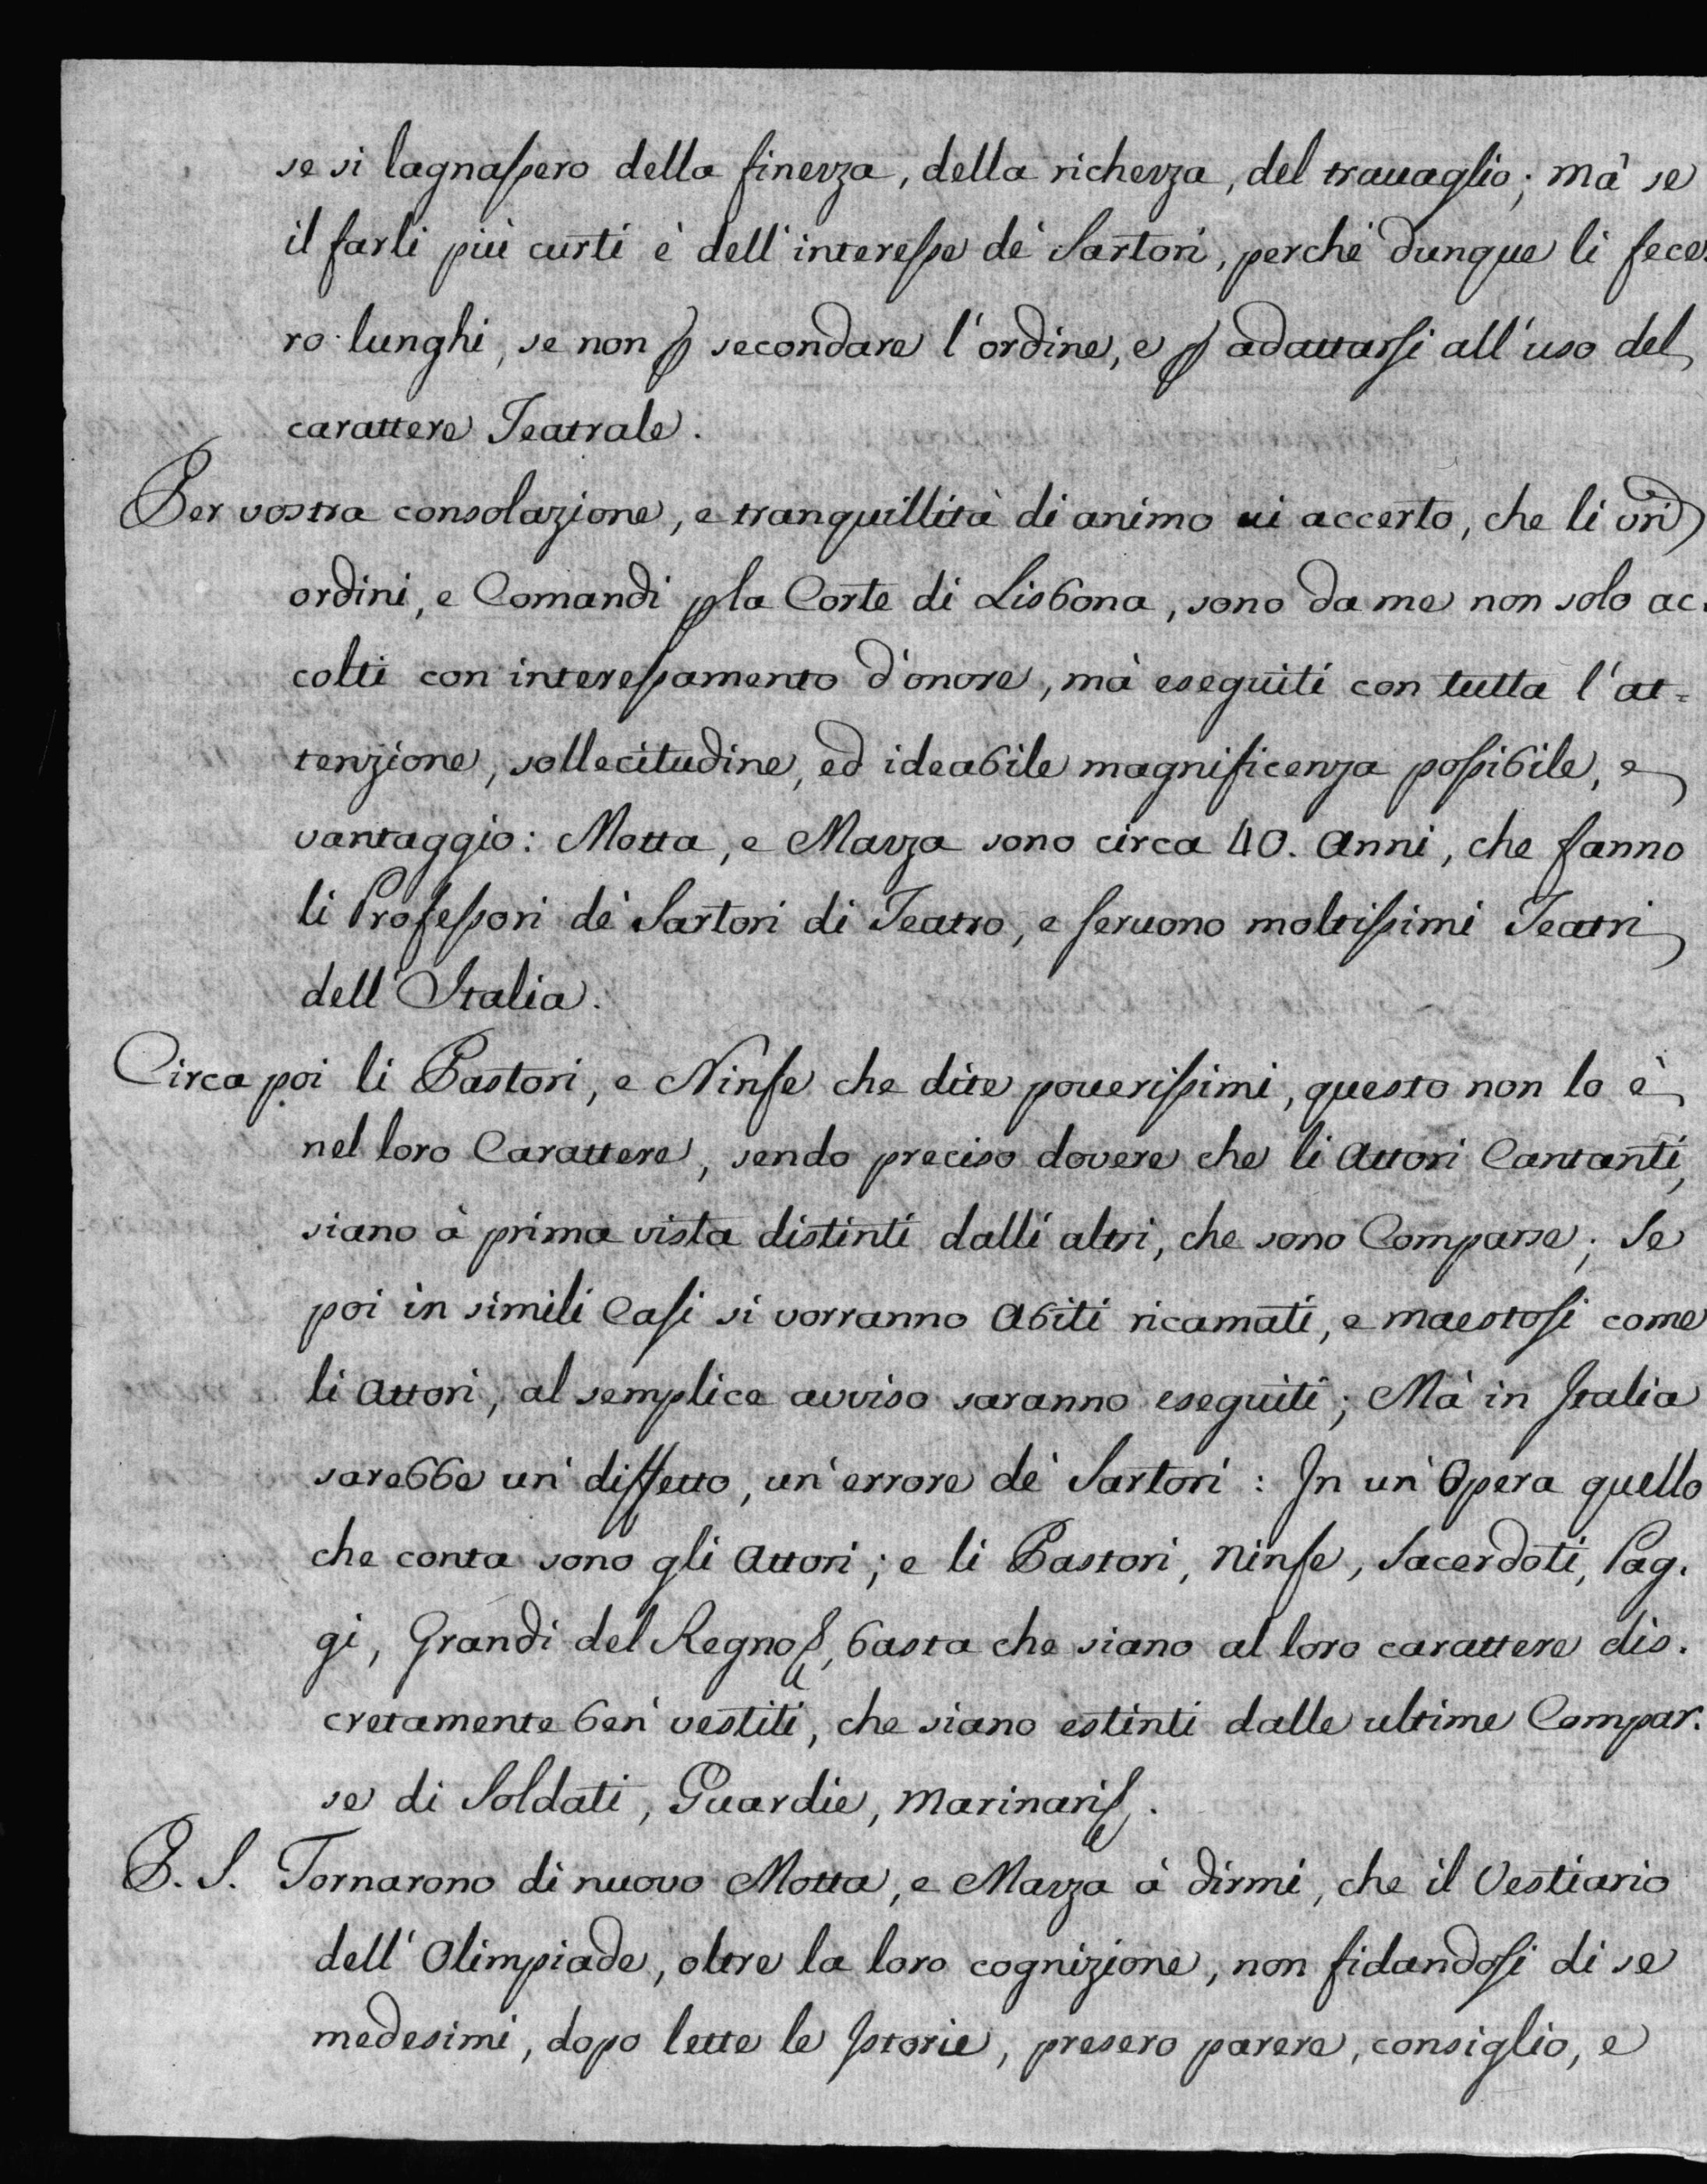 se si lagnassero della finezza, della richezza, del trauaglio; mà se
il farli più curti è dell'interesse de' Sartori, perchè dunque li fece-
ro lunghi, se non p secondare l'ordine, e p adattarsi all'uso del
carattere Teatrale.
Per vostra consolazione, e tranquillità di animo ui accerto, che li vri
ordini, e Comandi p la Corte di Lisbona, sono da me non solo ac-
colti con interessamento d'onore, mà eseguiti con tutta l'at=
tenzione, sollecitudine, ed ideabile magnificenza possibile, e
vantaggio: Motta, e Mazza sono circa 40. Anni, che fanno
li Professori de' Sartori di Teatro, e seruono moltissimi Teatri
dell'Italia.
Circa poi li Pastori, e Ninfe che dite pouerissimi, questo non lo è
nel loro Carattere, sendo preciso dovere che li Attori Cantanti,
siano à prima vista distinti dalli altri, che sono Comparse; Se
poi in simili Casi si vorranno Abiti ricamati, e maestosi come
li Attori, al semplice avviso saranno eseguiti; Mà in Italia
sarebbe un' diffetto, un' errore de' Sartori: In un' Opera quello
che conta sono gli Attori; e li Pastori, Ninfe, Sacerdoti, Pag-
gi, Grandi del Regno, basta che siano al loro carattere dis-
cretamente ben' vestiti, che siano estinti dalle ultime Compar-
se di Soldati, Guardie, Marinari.
P. S. Tornarono di nuovo Motta, e Mazza à dirmi, che il Vestiario
dell'Olimpiade, oltre la loro cognizione, non fidandosi di se
medesimi, dopo lette le Istorie, presero parere, consiglio, e